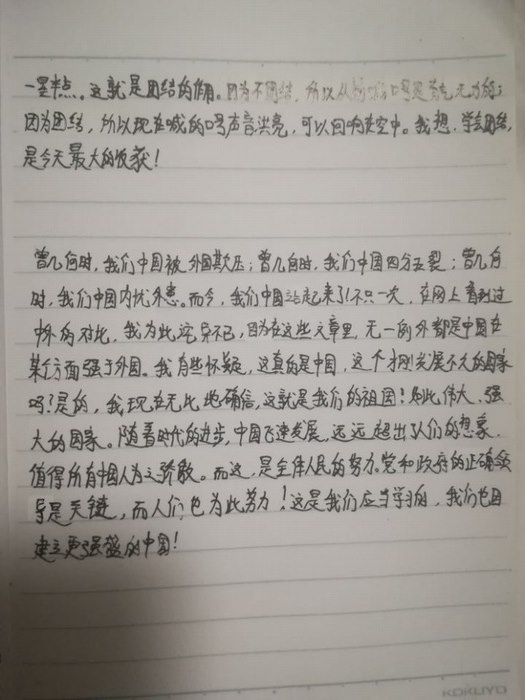 一星半点。这就是团结的作用。因为不团结，所以从前喊的口号是有气无力的；
因为团结，所以现在喊的口号声音洪亮，可以回响在空中。我想，学会团结，
是今天最大的收获！
曾几何时，我们中国被外国欺压；曾几何时，我们中国四分五裂；曾几何
时，我们中国内忧外患。而今，我们中国站起来了！不只一次，在网上看到过
中外的对比，我为此诧异不已，因为在这些文章里，无一例外都是中国在
某个方面强于外国。我有些怀疑，这真的是中国，这个才刚发展不久的国家
吗？是的，我现在无比地确信，这就是我们的祖国！如此伟大、强
大的国家。随着时代的进步，中国飞速发展，远远超出人们的想象，
值得所有中国人为之骄傲。而这，是全体人民的努力。党和政府的正确领
导是关键，而人们也为此努力！这是我们应当学习的，我们也因
建立更强盛的中国！
KOKUYO